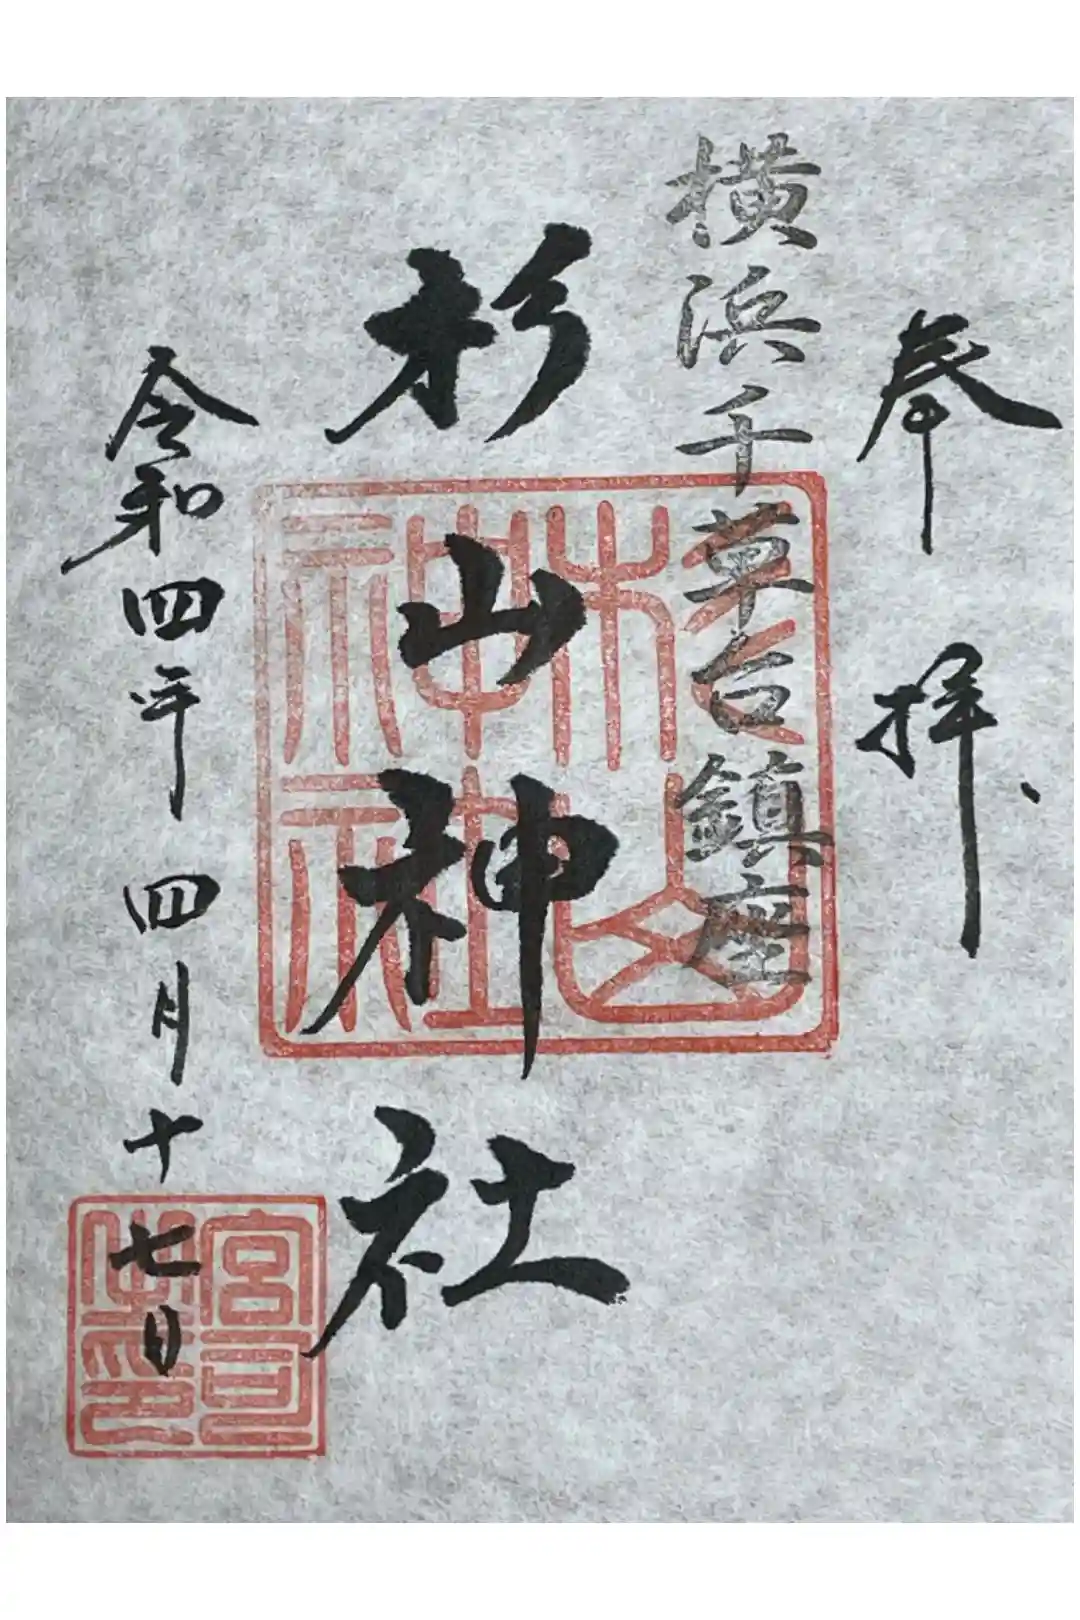 奉拝、
横浜千草台鎮座
杉山神社
杉山神社
令和四年四月十七日
宮司之印